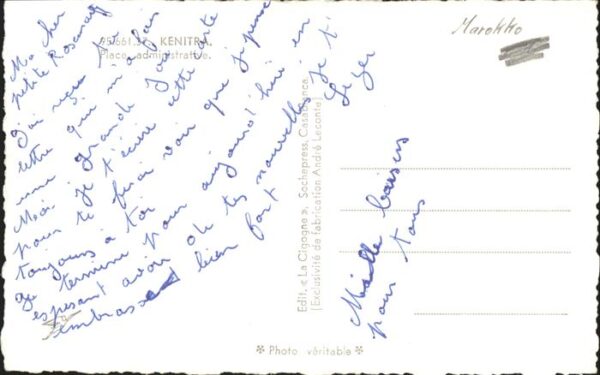 95.661.37 - KENITRA.
Place administrative.
Ma cher
petite Rosemay
J'ai reçu ta
lettre que m'a fais
une grande Joie
Moi Je t'écrire cette carte
pour te faire voir que je pense
toujours à toi
Je termine pour aujourd'hui en
espesant avoir de tes nouvelles je t'
embrasse bien fort
Mille baisers
pour tous
Marokko
Edit. « La Cigogne », Sochepress, Casablanca
(Exclusivité de fabrication André Leconte)
✻ Photo véritable ✻